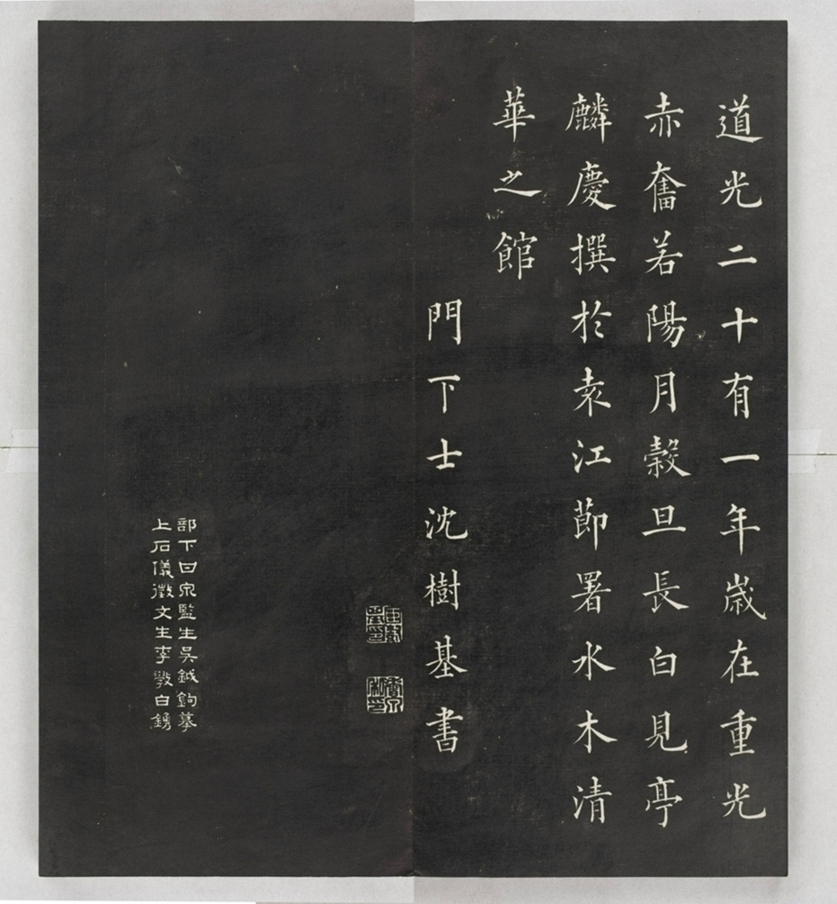 道光二十有一年歲在重光
赤奮若陽月穀旦長白見亭
麟慶撰於袁江節署水木清
華之館
門下士沈樹基書
部下曰泉監生吳鉞鉤摹
上石儀徵文生李鶚白鐫